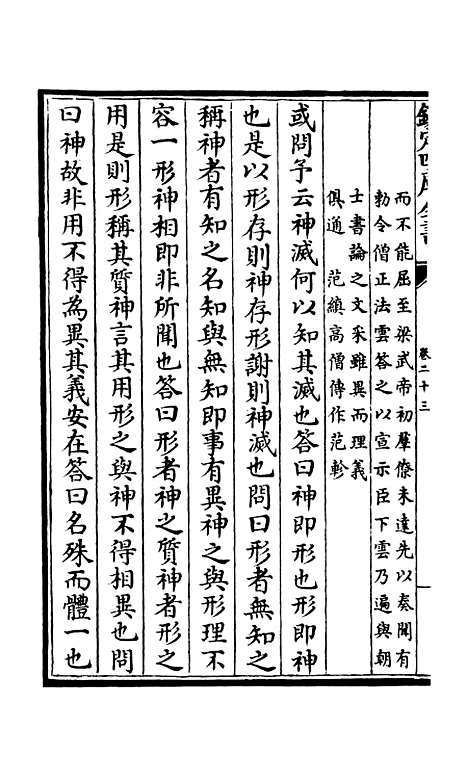 欽定四庫全書
卷二十三
而不能屈至梁武帝初羣僚未達先以奏聞有
勅令僧正法雲荅之以宣示臣下雲乃遍與朝
士書論之文采雖異而理義
俱通 范縝高僧傳作范軫
或問予云神滅何以知其滅也答曰神即形也形即神
也是以形存則神存形謝則神滅也問曰形者無知之
稱神者有知之名知與無知即事有異神之與形理不
容一形神相即非所聞也答曰形者神之質神者形之
用是則形稱其質神言其用形之與神不得相異也問
曰神故非用不得為異其義安在答曰名殊而體一也